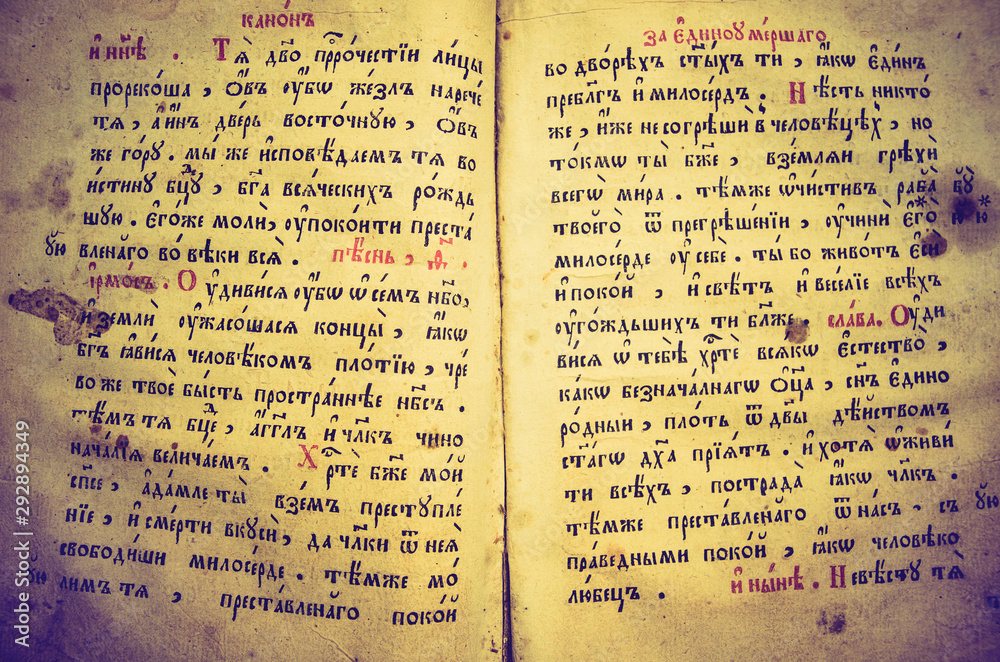 канѡ́нъ
и҆ нн҃ѣ . Тѧ̀ дв҃о прⷪ҇ро́честїи ли́цы
прореко́ша , ѻ҆́въ ᲂу҆́бѡ же́злъ нарече́
тѧ , а҆и҆́нъ две́рь восто́чную , ѻ҆́въ
же го́ру . мы́ же и҆сповѣ́даемъ тѧ во
и҆́стину бцⷣу , бг҃а всѧ́ческихъ ро́ждь
шую . є҆го́же молѝ , ᲂу҆поко́ити преста́
вленаго во вѣ́ки всѧ̀ . пѣ́снь , ѳ҃ .
ᲂу҆ю
і҆рмо́съ . Оу҆диви́сѧ ᲂу҆́бѡ ѡ҆ се́мъ нб҃о ,
и҆ землѝ ᲂу҆жасо́шасѧ концы̀ , ꙗ҆́кѡ
бг҃ъ ꙗ҆ви́сѧ человѣ́комъ пло́тїю , чре́
во же твоѐ бы́сть простра́ннѣе нб҃съ .
тѣ́мъ тѧ бцⷣе , а҆́гг҃лъ и҆ чл҃къ чино
нача́лїѧ велича́емъ . Хрⷭ҇тѐ бж҃е мо́й
сп҃се , а҆да́мле ты̀ взе́мъ преступле́
нїе , и҆ сме́рти вкусѝ , да чл҃ки ѿ неѧ̀
свободи́ши милосе́рде . тѣ́мже мо́
лимъ тѧ , преста́вленаго поко́й
ᲂу҆ю
за є҆диноуме́ршаго
во дво́рѣхъ ст҃ы́хъ ти , ꙗ҆́кѡ є҆ди́нъ
пребл҃гъ и҆ милосе́рдъ . Нѣ́сть никто́
же , и҆́же не согрѣшѝ в человѣ́цѣх , но
то́кмѡ ты̀ бж҃е , взе́млѧи грѣхѝ
всегѡ̀ ми́ра . тѣ́мже ѡ҆чи́стивъ раба̀ бу̀
твоего̀ ѿ прегрѣше́нїи , ᲂу҆чинѝ є҆го̀ * ю ю *
милосе́рде ᲂу҆ себѐ . ты́ бо живо́тъ є҆сѝ
и҆ поко́й , и҆ свѣ́тъ и҆ весе́лїе всѣ́хъ
ᲂу҆го́ждьшихъ ти бл҃же . сла́ва . Оу҆ди
ви́сѧ ѡ҆ тебѣ̀ хрⷭ҇тѐ всѧко є҆стество̀ ,
ка́кѡ безнача́лнагѡ ѻ҆ц҃а̀ , сн҃ъ є҆дино
ро́дныи , пло́ть ѿ дв҃ы дѣ́йствомъ
ст҃а́гѡ дх҃а прїѧ́тъ . и҆ хотѧ̀ ѡ҆живи́
ти всѣ́хъ , пострада̀ ꙗ҆́кѡ чл҃къ .
тѣ́мже преста́вленаго ѿ на́съ , съ ᲂу҆ю
пра́ведными поко́й , ꙗ҆́кѡ человѣко
лю́бецъ . и҆ ны́нѣ . Невѣ́сту тѧ
Adobe Stock | #292894349